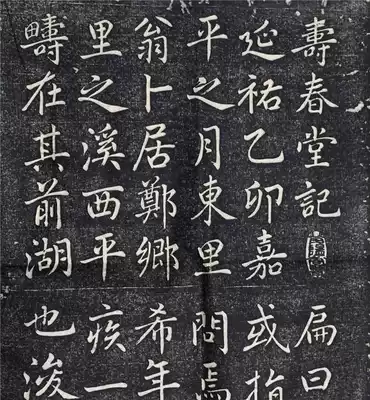 壽春堂記
延祐乙卯嘉
平之月東里
翁卜居鄭鄉
里之溪西平
疇在其前湖
扁曰
或指
問焉
希年
疾一
也浚